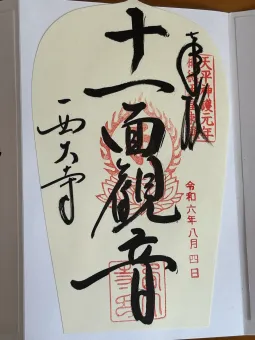 奉拝
天平神護元年
十一面観音
令和六年八月四日
西大寺